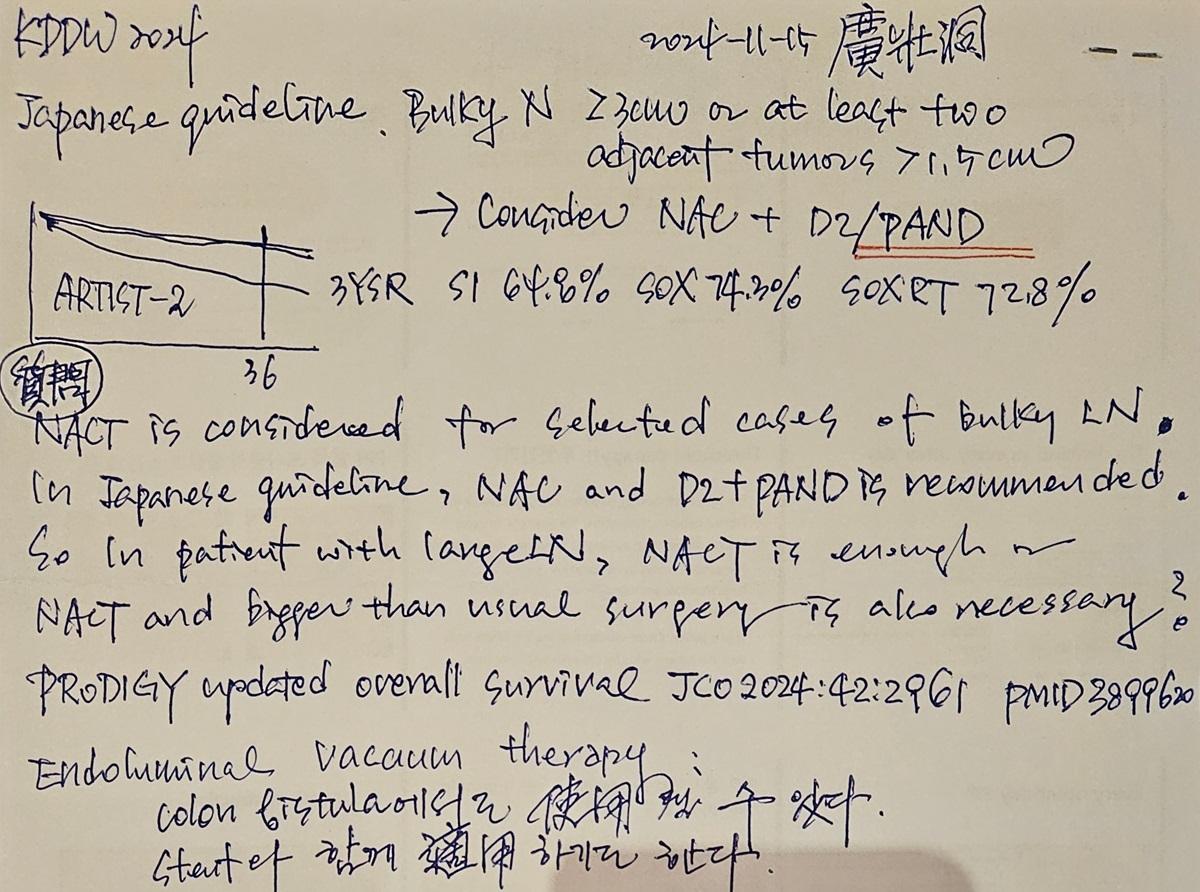 KDDW 2024
2024-11-15 廣壯洞
Japanese guideline. Bulky N ≥3cm or at least two
adjacent tumors >1.5cm
→ Consider NAC + D2/PAND
ARTIST-2
3YSR S1 64.8% SOX 74.3% SOXRT 72.8%
36
質問
NACT is considered for selected cases of bulky LN.
In Japanese guideline, NAC and D2+PAND is recommended.
So in patient with large LN, NACT is enough or
NACT and bigger than usual surgery is also necessary?
PRODIGY updated overall survival JCO 2024:42:2961 PMID 3899620
Endoluminal vacuum therapy :
colon fistula에서도 使用할 수 있다.
Stent와 함께 適用하기도 한다.